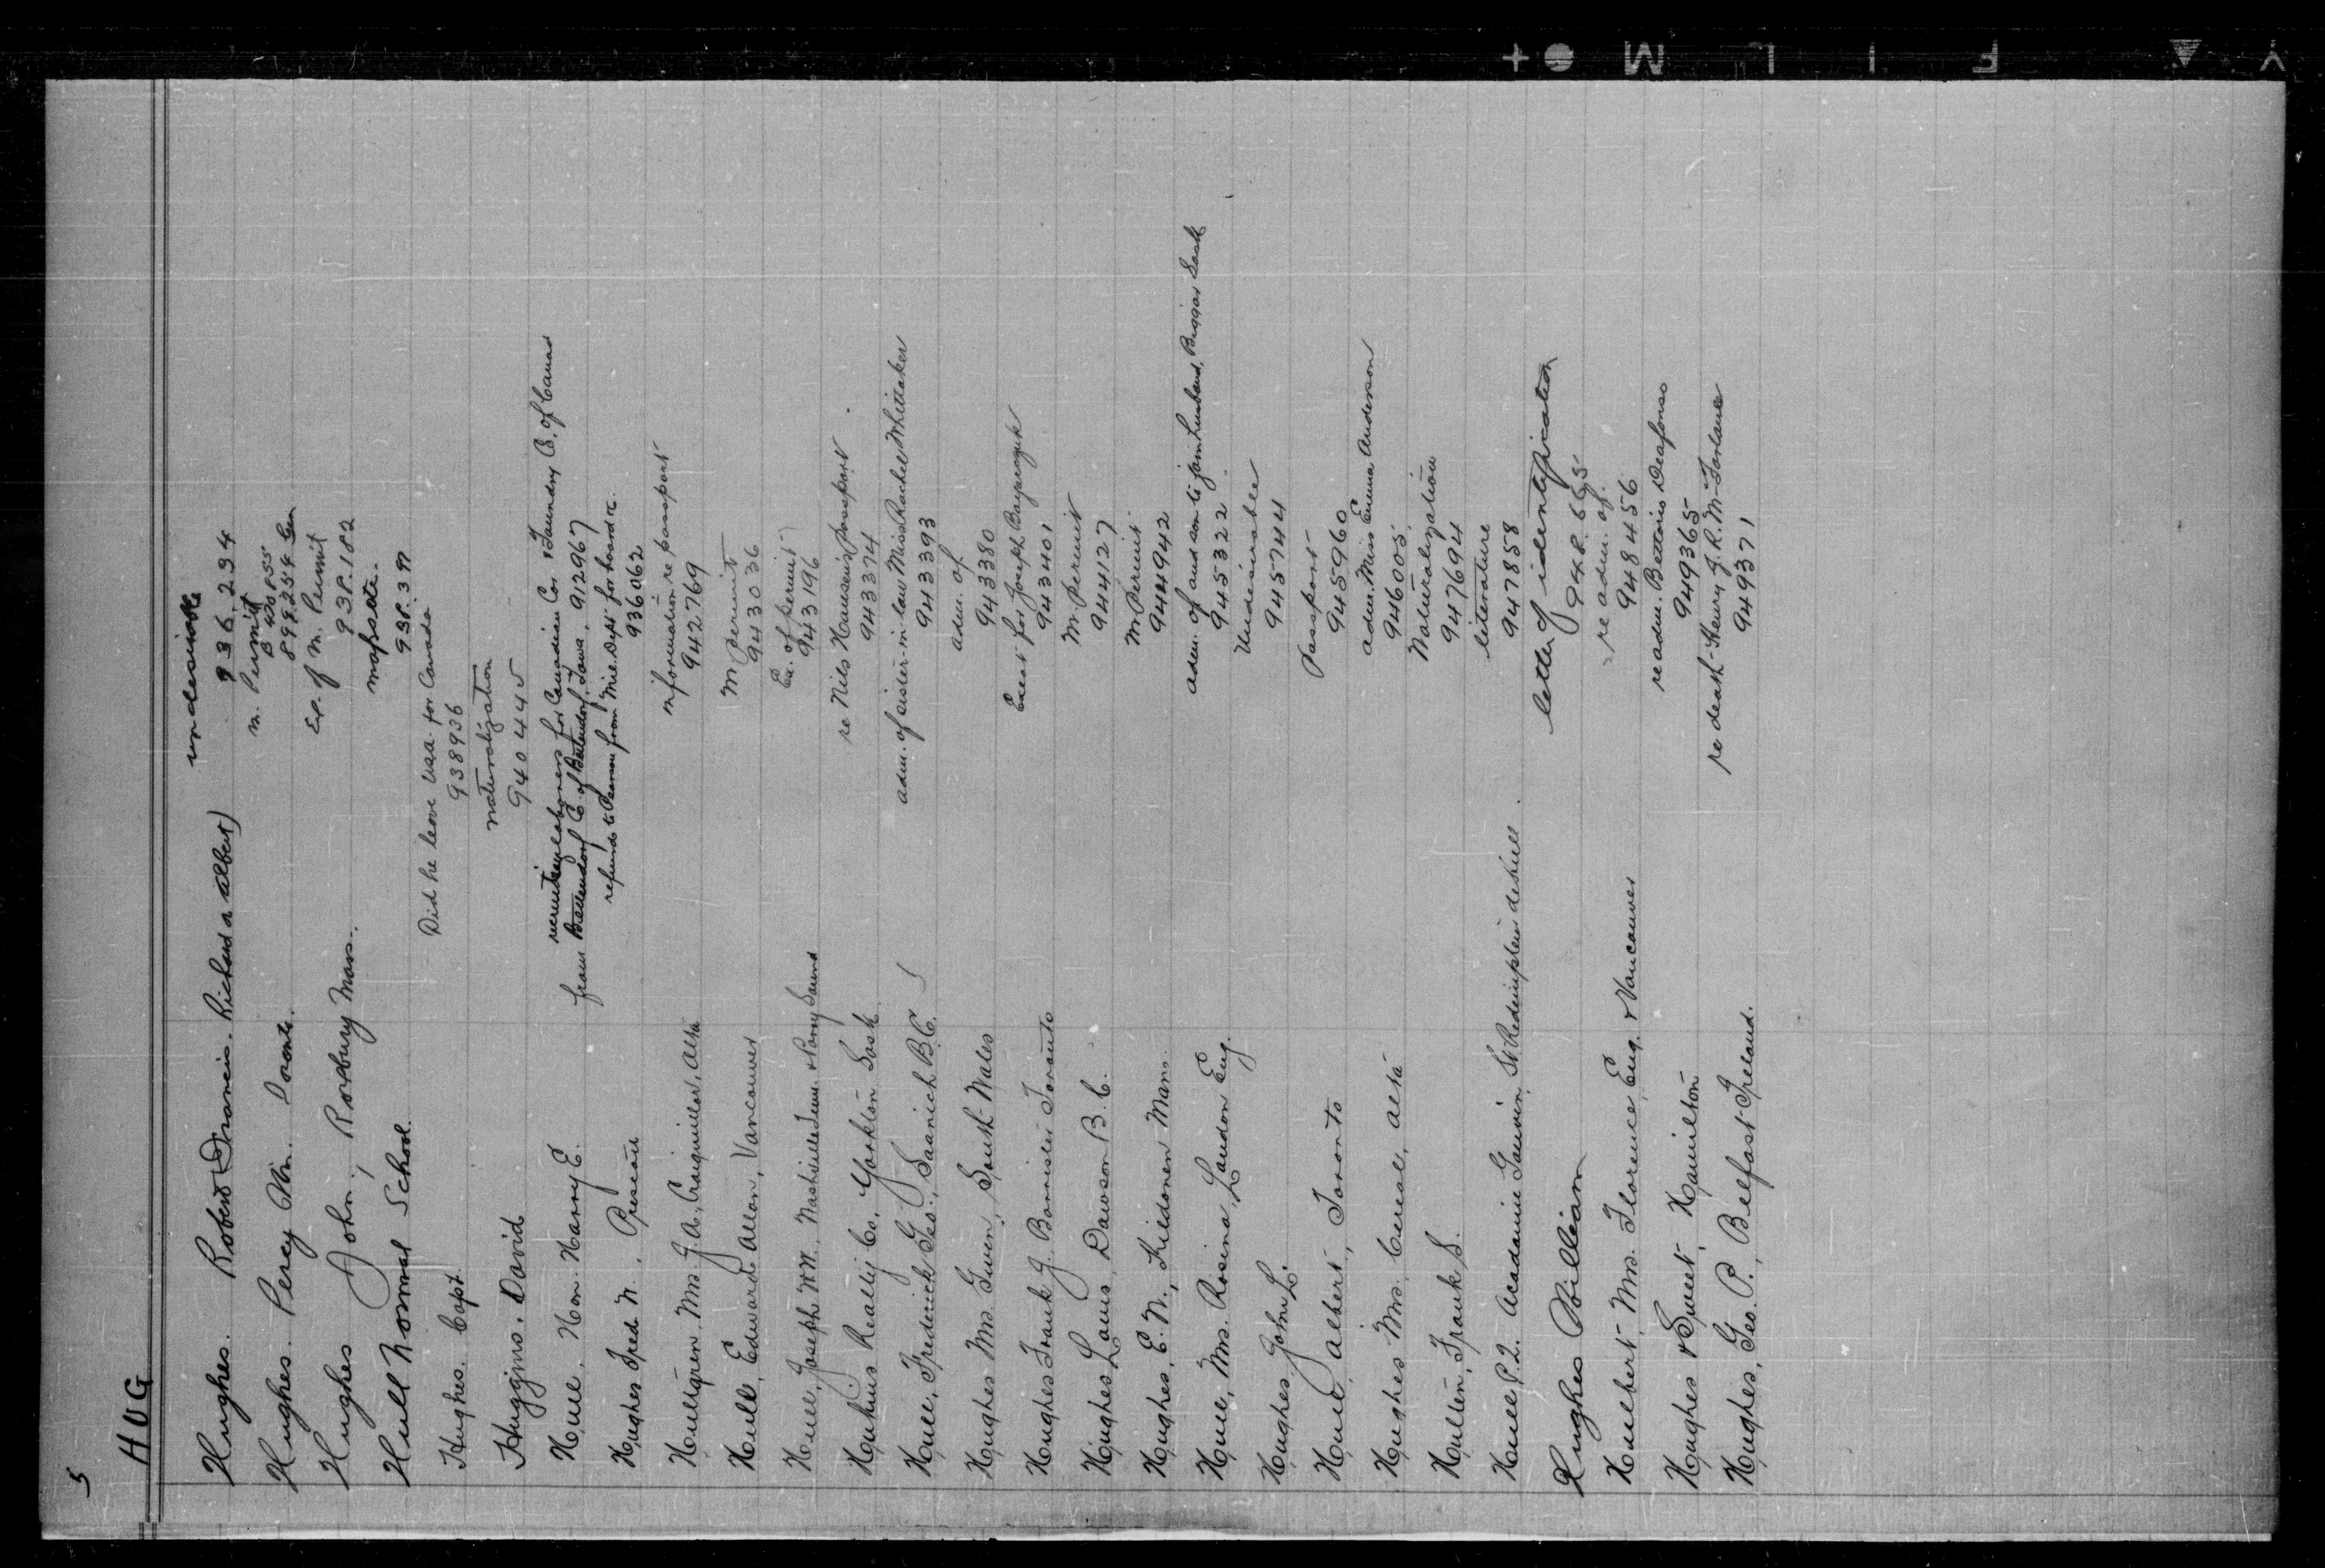 5
HUG
Hughes. Robert Francis. Richard or Albert) undesirable
936.234
Hughes. Percy Wm. Toronto. m. Permit
B 420855
899.254
Hughes John, Roxbury Mass. Ex. of m. Permit
938.182
Hull Normal School.
938.397
Hughes. Capt. Did he leave U.S.A. for Canada
938936
Huggins. David naturalization
940445
Hull. Hon. Harry E. recruiting laborers for Canadian Car & Foundry Co. of Canad
from Bettendorf Co. of Bettendorf, Iowa, 912967
Hughes Fred N., Prescott refunds to Pearson from Mil. Dept for board &c.
936062
Hullgren, Mrs. J. A., Craigmillar, Alta information re passport
942769
Hull, Edward Allan, Vancouver M permit
943036
Hull, Joseph Wm., Nashville Tenn. & Parry Sound Ex. of permit
943196
Realty Co., Yorkton Sask. re Nils Hansen's passport
943374
Hull, Frederick Geo., Saanich B.C. adm. of sister-in-law Miss Rachel Whittaker
943393
Hughes Mrs. Gwen, South Wales adm. of
943380
Hughes Frank J., Barrister Toronto for Joseph
943401
Hughes Louis, Dawson B.C. M. Permit
944127
Hughes, E. N., Kildonan Man. M Permit
944942
Hull, Mrs. Rosina, London Eng. adm. of and son to join husband, Biggar Sask
945322
Hughes, John L. Undesirable
945744
Hull, Albert, Toronto Passport
945960
Hughes Mrs. Cereal, Alta adm. Miss Emma Anderson
946005
Hulten, Frank S. Naturalization
947694
Hull P.Q. Academie St Redempteur de Hull. literature
947858
Hughes William letter of identification
948.665
Hulbert, Mrs. Florence, Eng. & Vancouver re adm. of.
948456
Hughes & Sweet, Hamilton re adm. Betteris
949365
Hughes, Geo. P., Belfast Ireland. re death Henry J. R. McFarlane
949371
FILM